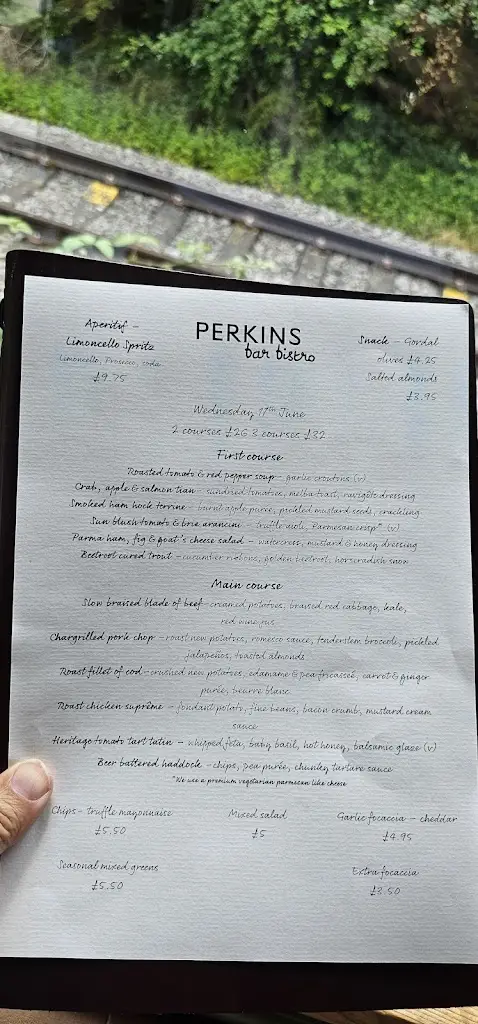 Aperitif –
Limoncello Spritz
Limoncello, Prosecco, soda
£9.75
PERKINS
bar bistro
Snack – Gordal
olives £4.25
Salted almonds
£3.95
Wednesday 11th June
2 courses £26 3 courses £32
First course
Roasted tomato & red pepper soup – garlic croutons (v)
Crab, apple & salmon tian – sundried tomatoes, melba toast, ravigote dressing
Smoked ham hock terrine – burnt apple purée, pickled mustard seeds, crackling
Sun blush tomato & brie arancini – truffle aioli, Parmesan crisp* (v)
Parma ham, fig & goat's cheese salad – watercress, mustard & honey dressing
Beetroot cured trout – cucumber ribbons, golden beetroot, horseradish snow
Main course
Slow braised blade of beef – creamed potatoes, braised red cabbage, kale,
red wine jus
Chargrilled pork chop – roast new potatoes, romesco sauce, tenderstem broccoli, pickled
jalapeños, toasted almonds
Roast fillet of cod – crushed new potatoes, edamame & pea fricasseé, carrot & ginger
purée, beurre blanc
Roast chicken suprême – fondant potato, fine beans, bacon crumb, mustard cream
sauce
Heritage tomato tart tatin – whipped feta, baby basil, hot honey, balsamic glaze (v)
Beer battered haddock – chips, pea purée, chunky tartare sauce
*We use a premium vegetarian parmesan like cheese
Chips – truffle mayonnaise
£5.50
Mixed salad
£5
Garlic focaccia – cheddar
£4.95
Seasonal mixed greens
£5.50
Extra focaccia
£3.50